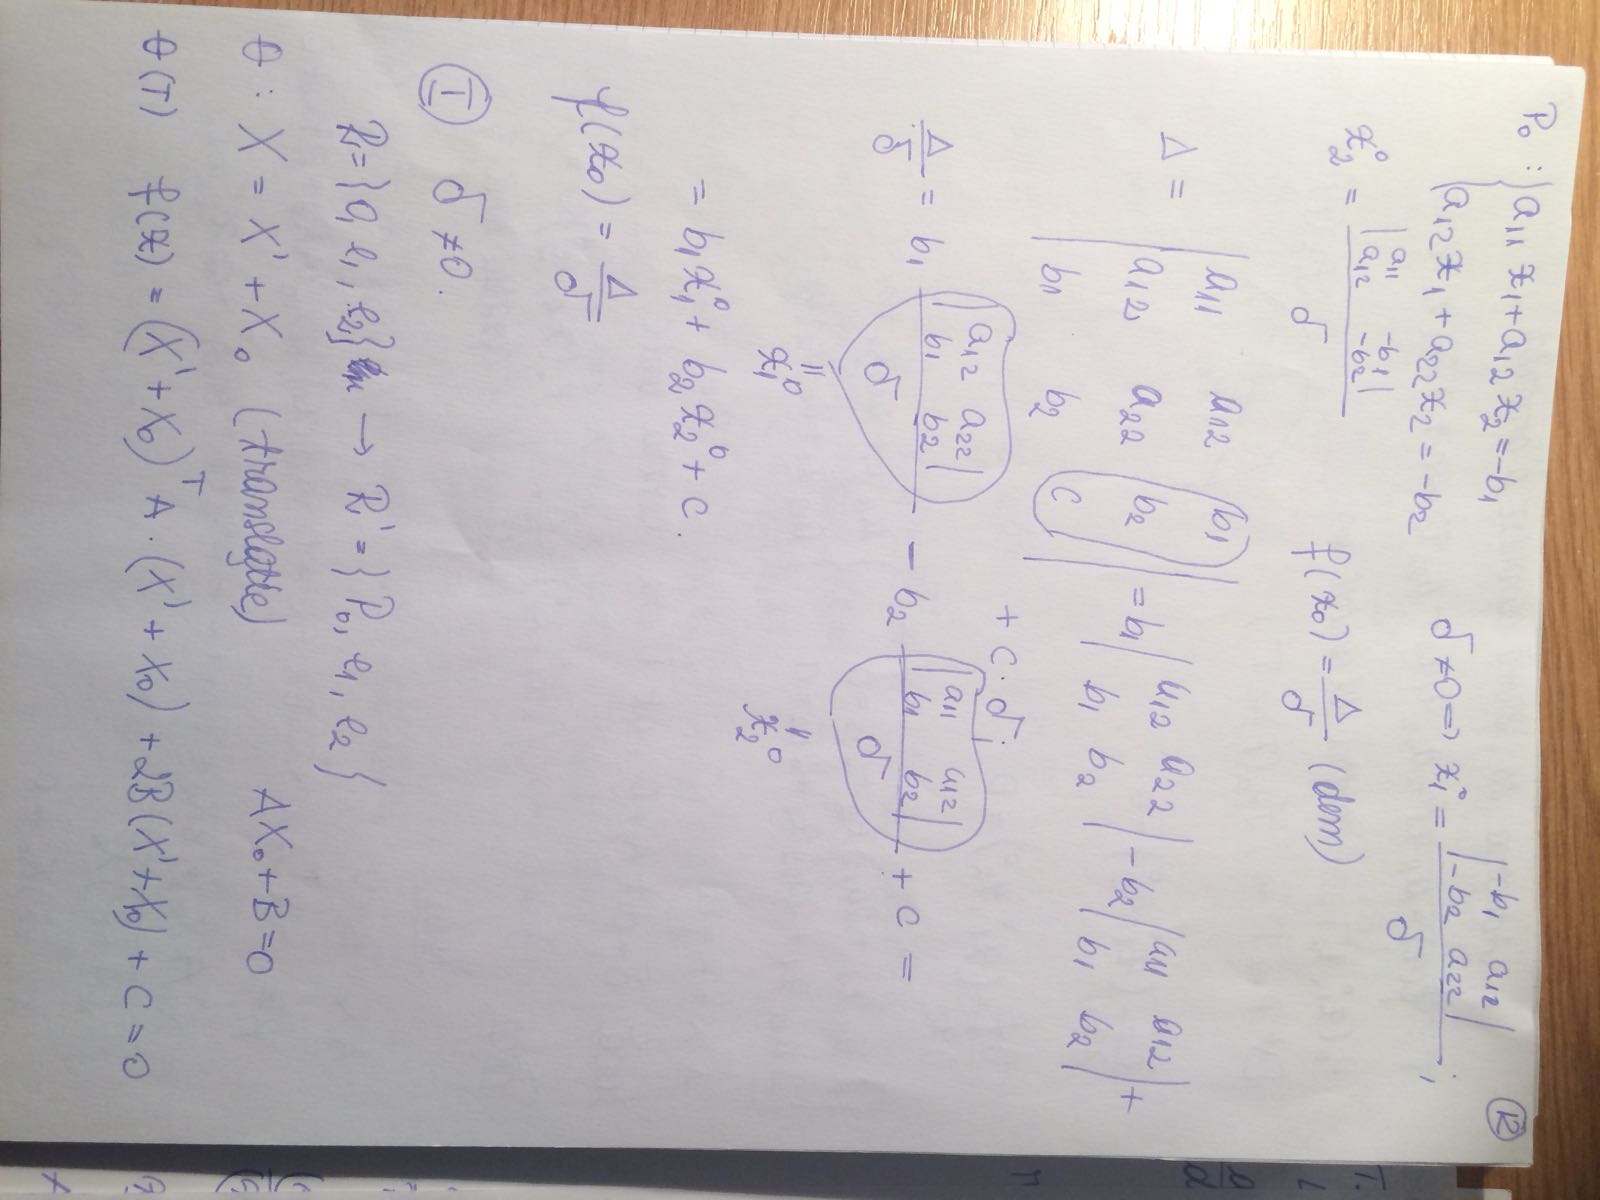 12
P₀ : { a₁₁ x₁ + a₁₂ x₂ = -b₁
a₁₂ x₁ + a₂₂ x₂ = -b₂
δ ≠ 0 => x₁⁰ = | -b₁ a₁₂ | / δ ;
| -b₂ a₂₂ |
x₂⁰ = | a₁₁ -b₁ | / δ
| a₁₂ -b₂ |
f(x₀) = Δ/δ (dem)
Δ = | a₁₁ a₁₂ b₁ |
| a₁₂ a₂₂ b₂ |
| b₁ b₂ c |
= b₁ | a₁₂ a₂₂ | - b₂ | a₁₁ a₁₂ | +
| b₁ b₂ | | b₁ b₂ |
+ c · δ ;
Δ/δ = b₁ | a₁₂ a₂₂ | / δ - b₂ | a₁₁ a₁₂ | / δ + c =
| b₁ b₂ | | b₁ b₂ |
" x₁⁰ " x₂⁰
= b₁ x₁⁰ + b₂ x₂⁰ + c.
f(x₀) = Δ/δ
I δ ≠ 0.
R = { 0, e₁, e₂} → R' = { P₀, e₁, e₂ }
θ : X = X' + X₀ (translație) AX₀ + B = 0
θ(Γ) f(x) = (X' + X₀)ᵀ A · (X' + X₀) + 2B (X' + X₀) + c = 0